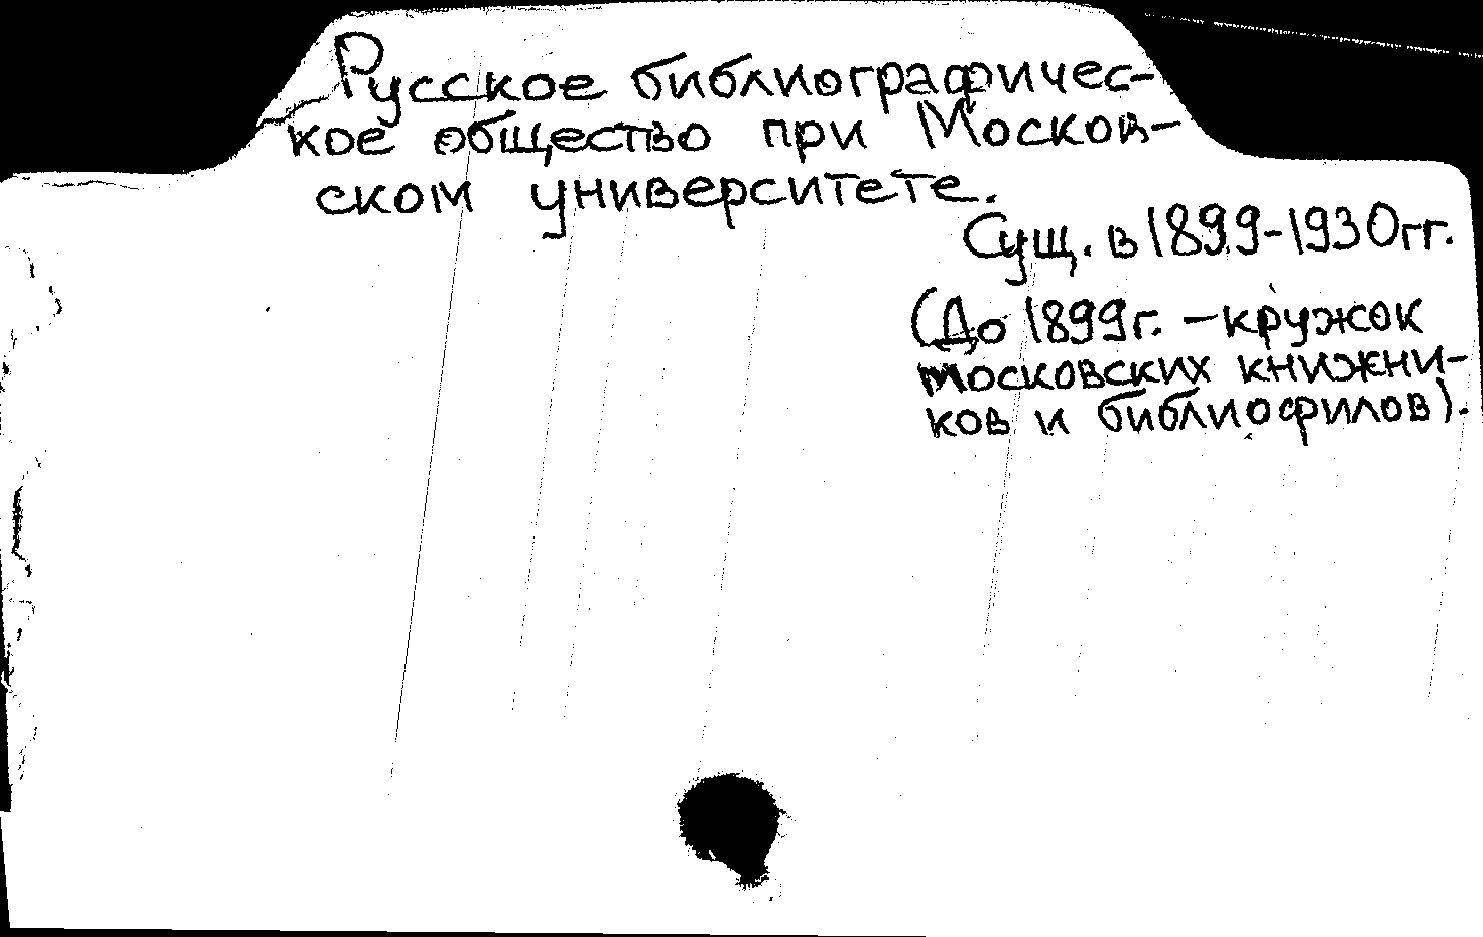 Русское библиографичес-
кое общество при Москов-
ском университете.
Сущ. в 1899-1930 гг.
(До 1899 г. - кружок
московских книжни-
ков и библиофилов).